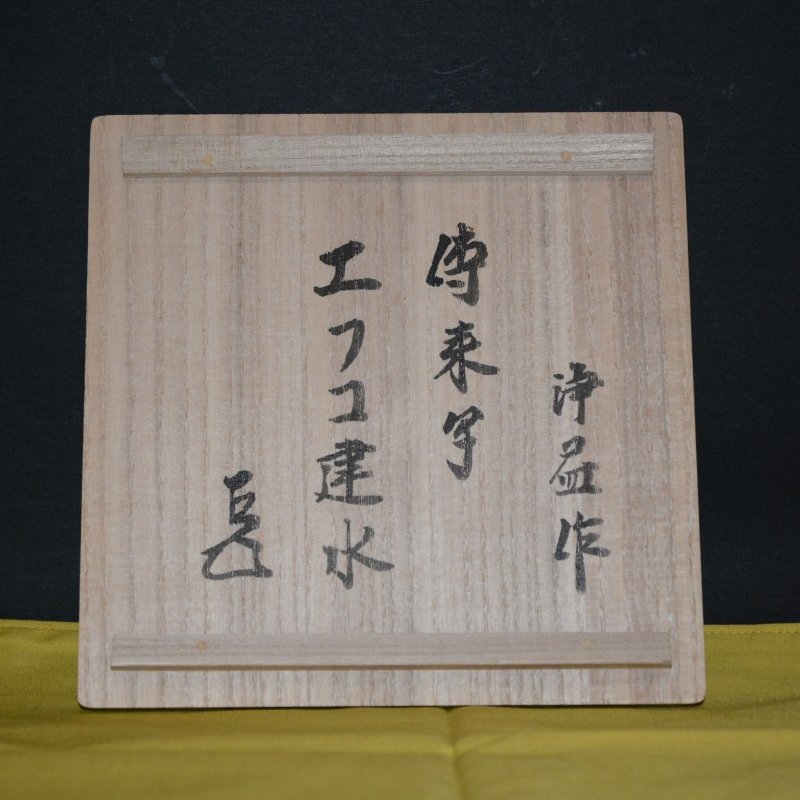 浄益作
傳来写
エフコ建水